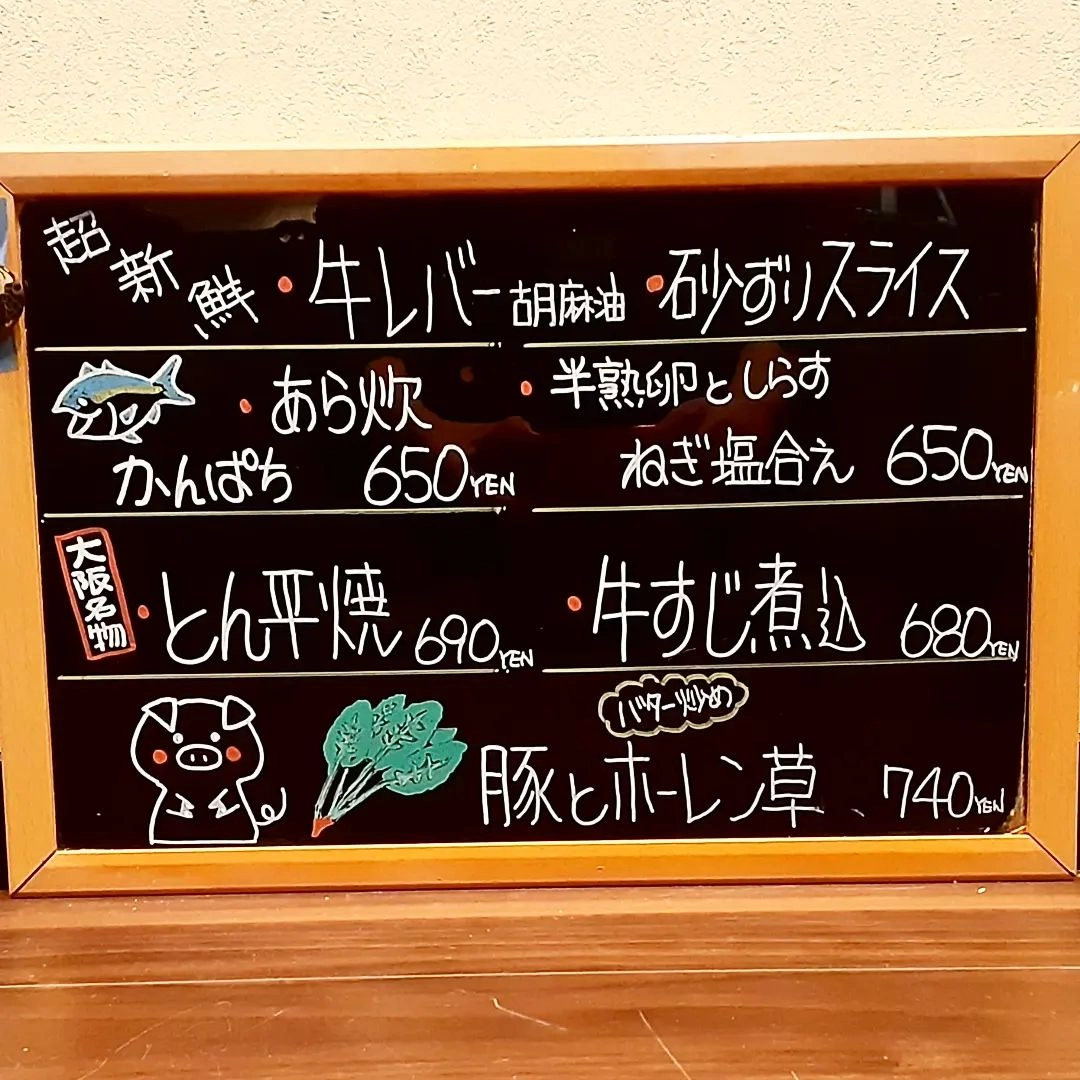 超新鮮
・牛レバー 胡麻油 ・砂ずりスライス
・あら炊
かんぱち 650YEN
・半熟卵としらす
ねぎ塩合え 650YEN
大阪名物
・とん平焼 690YEN
・牛すじ煮込 680YEN
バター炒め
豚とホーレン草 740YEN